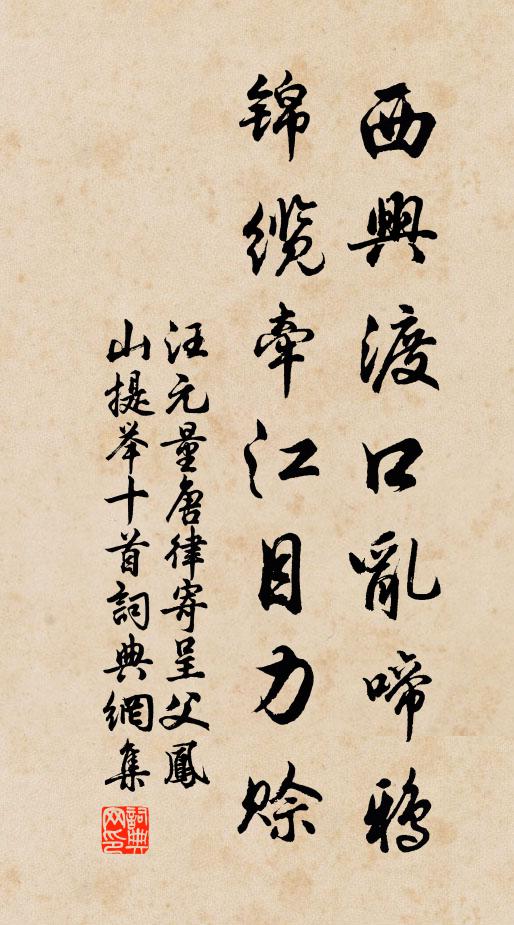 西興渡口亂啼鴉
锦缆牽江目力賒
汪元量唐律寄呈父鳳
山提举十首詞典網集
詞典网印